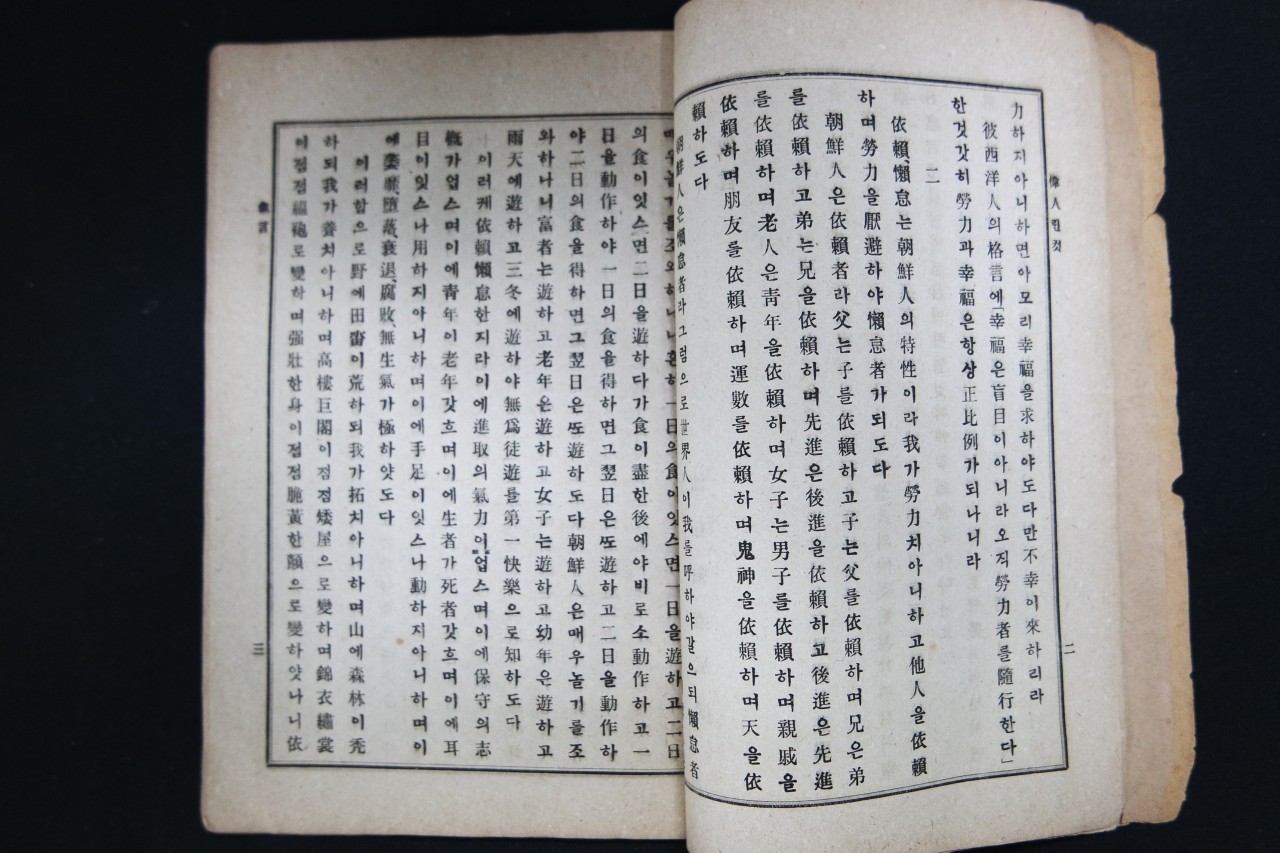 力하지아니하면아모리幸福을求하야도다만不幸이來하리라
彼西洋人의格言에「幸福은盲目이아니라오직勞力者를隨行한다」
한것갓히勞力과幸福은항상正比例가되나니라
二
依賴、懶怠는朝鮮人의特性이라我가勞力치아니하고他人을依賴
하며勞力을厭避하야懶怠者가되도다
朝鮮人은依賴者라父는子를依賴하고子는父를依賴하며兄은弟
를依賴하고弟는兄을依賴하며先進은後進을依賴하고後進은先進
를依賴하며老人은靑年을依賴하며女子는男子를依賴하며親戚을
依賴하며朋友를依賴하며運數를依賴하며鬼神을依賴하며天을依
賴하도다
朝鮮人은懶怠者라그럼으로世界人이我를呼하야갈으되懶怠者
一日의食이잇스면一日을遊하고二日
의食이잇스면二日을遊하다가食이盡한後에야비로소動作하고一
日을動作하야一日의食을得하면그翌日은또遊하고二日을動作하
야二日의食을得하면그翌日은또遊하도다朝鮮人은매우놀기를조
와하나니富者는遊하고老年은遊하고女子는遊하고幼年은遊하고
雨天에遊하고三冬에遊하야無爲徒遊를第一快樂으로知하도다
이러케依賴懶怠한지라이에進取의氣力이업스며이에保守의志
槪가업스며이에靑年이老年갓흐며이에生者가死者갓흐며이에耳
目이잇스나用하지아니하며이에手足이잇스나動하지아니하며이
에萎靡、墮落、衰退、腐敗、無生氣가極하얏도다
이러함으로野에田畓이荒하되我가拓치아니하며山에森林이禿
하되我가養치아니하며高樓巨閣이점점矮屋으로變하며錦衣繡裳
이점점縕袍로變하며强壯한身이점점脆黃한顔으로變하얏나니依
偉人될것
二
緖言
三